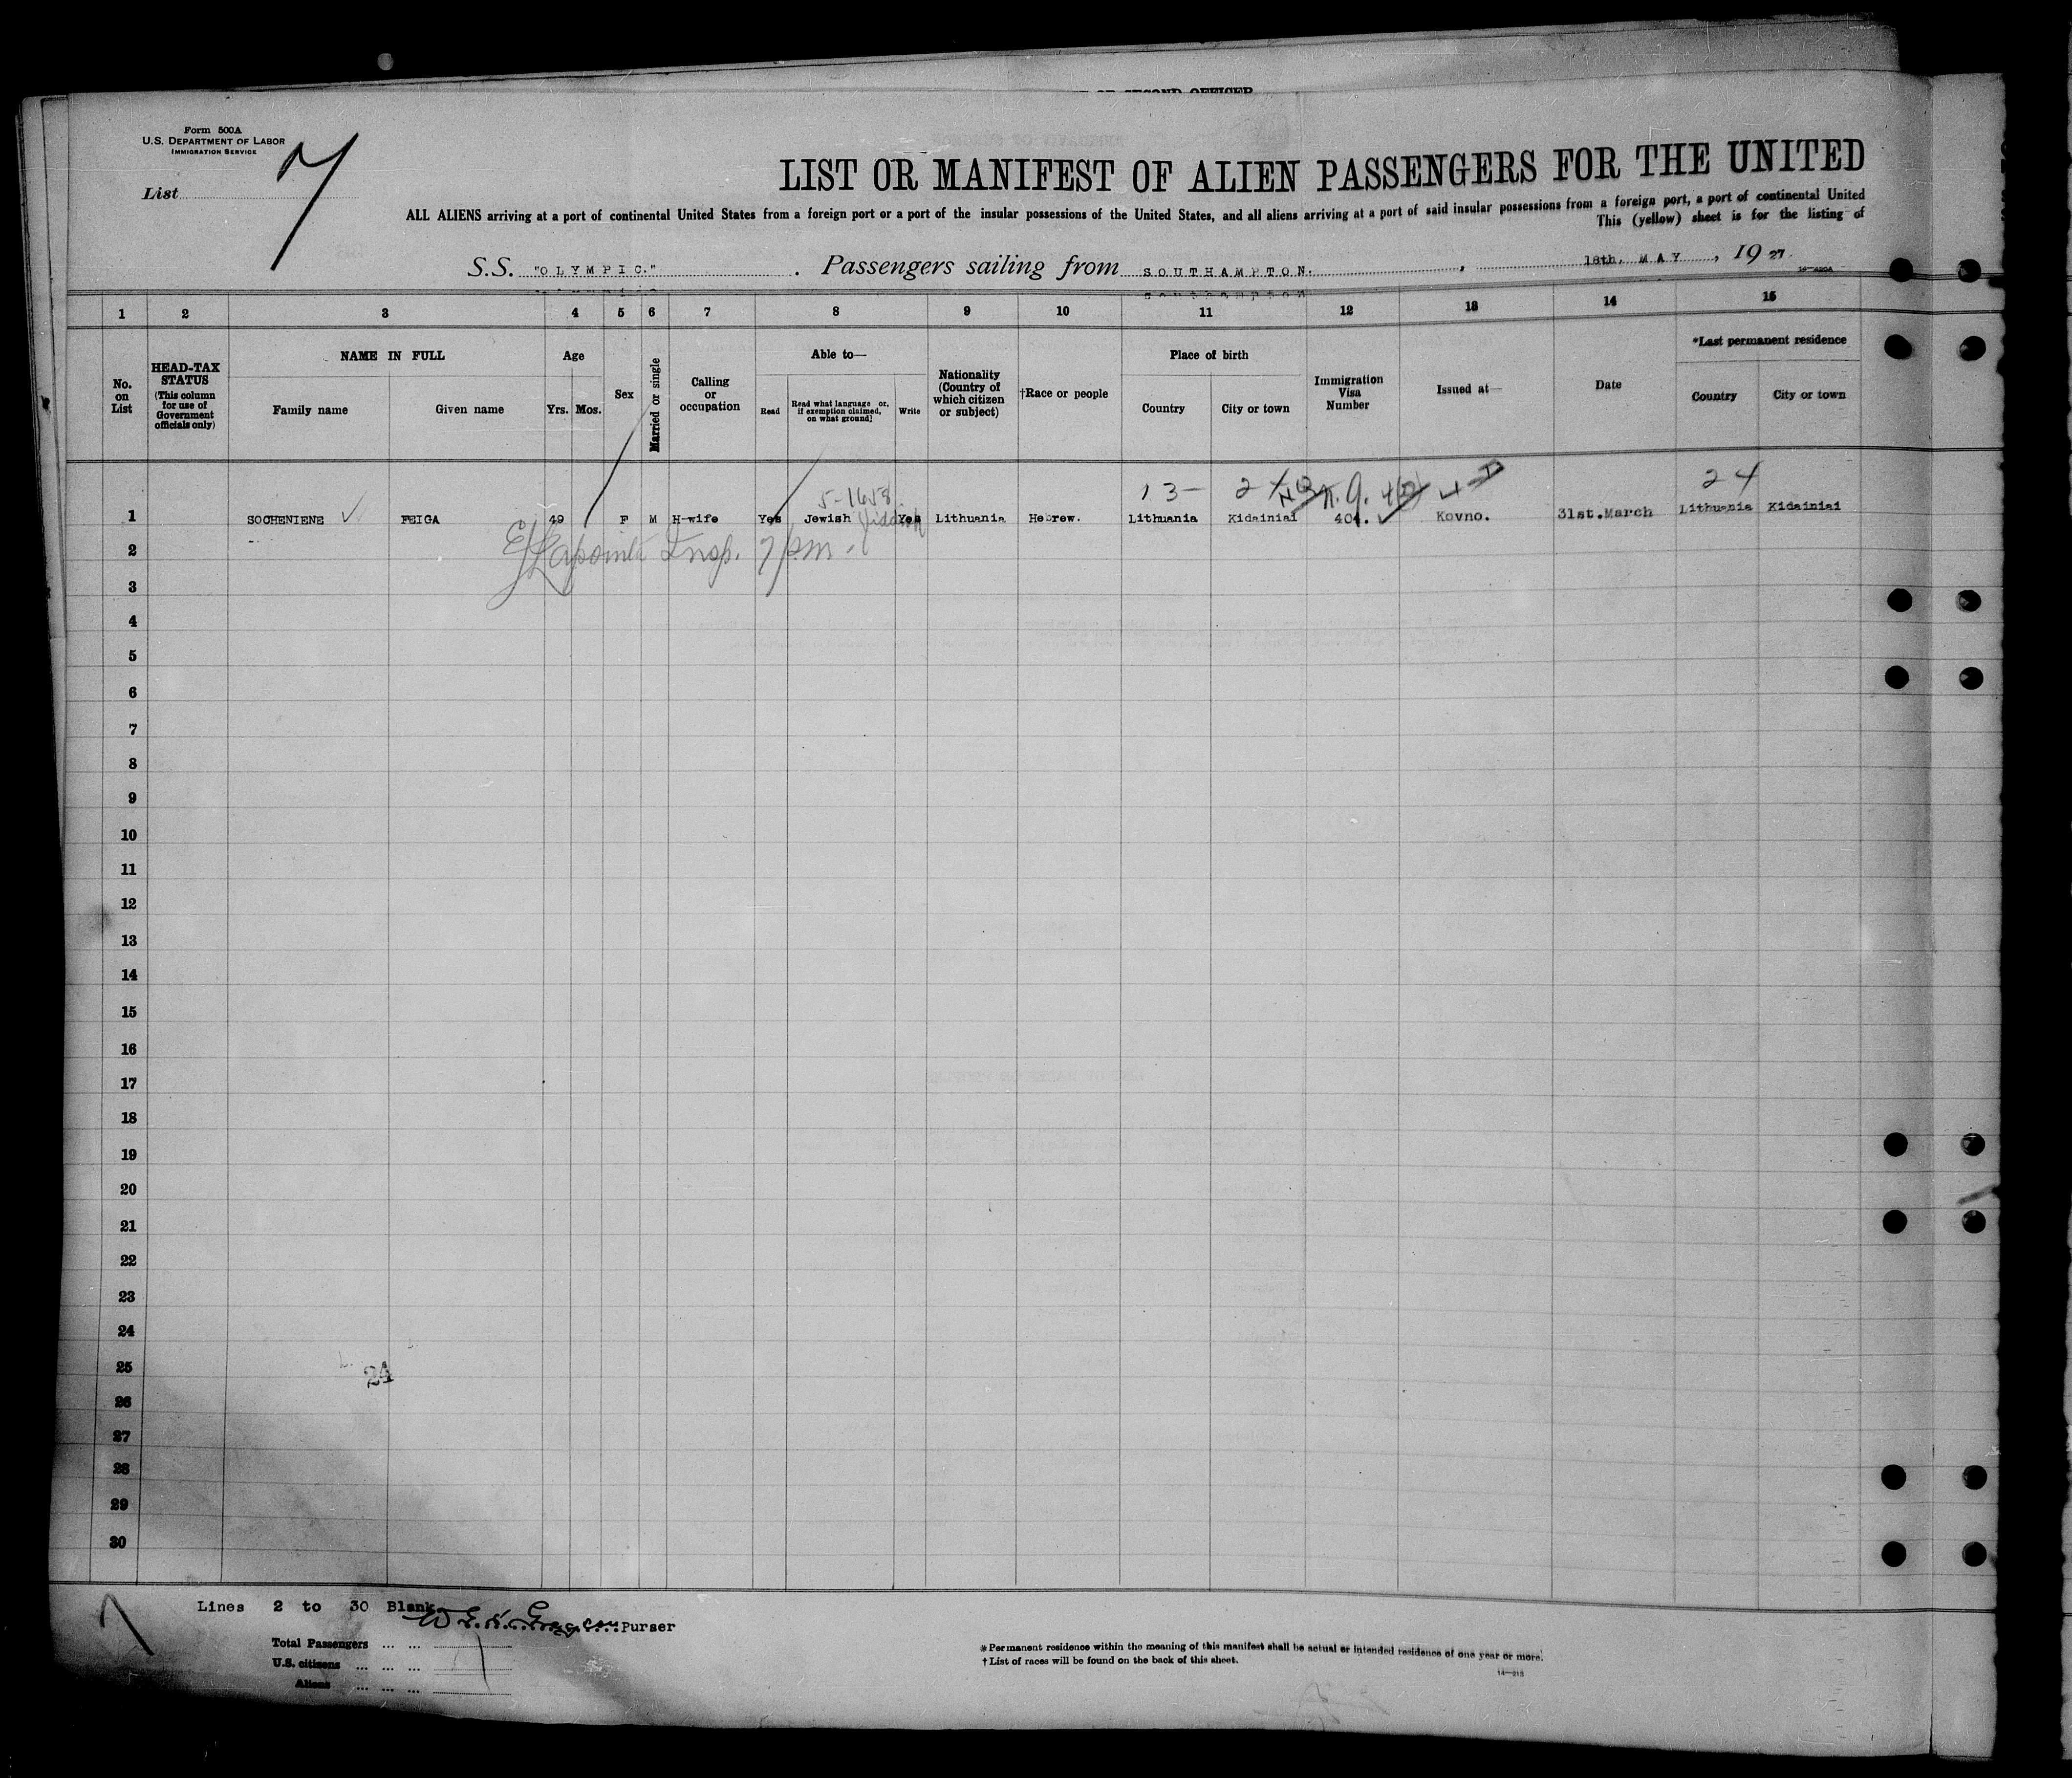 OF SECOND OFFICER
Form 500A
U.S. DEPARTMENT OF LABOR
IMMIGRATION SERVICE
List 7
LIST OR MANIFEST OF ALIEN PASSENGERS FOR THE UNITED
ALL ALIENS arriving at a port of continental United States from a foreign port or a port of the insular possessions of the United States, and all aliens arriving at a port of said insular possessions from a foreign port, a port of continental United
This (yellow) sheet is for the listing of
S.S. "OLYMPIC." . Passengers sailing from SOUTHAMPTON. , 18th. MAY , 19 27.
1 2 3 4 5 6 7 8 9 10 11 12 13 14 15
No. on List
HEAD-TAX STATUS (This column for use of Government officials only)
NAME IN FULL
Family name Given name
Age
Yrs. Mos.
Sex
Married or single
Calling or occupation
Able to—
Read Read what language or, if exemption claimed, on what ground] Write
Nationality (Country of which citizen or subject)
†Race or people
Place of birth
Country City or town
Immigration Visa Number
Issued at—
Date
*Last permanent residence
Country City or town
5-1658 13- 2 24
1 SOCHENIENE FEIGA 49 F M H-wife Yes Jewish Yiddish Yes Lithuania Hebrew. Lithuania Kidainiai 404. Kovno. 31st.March Lithuania Kidainiai
2 Insp. 7 pm.
3
4
5
6
7
8
9
10
11
12
13
14
15
16
17
18
19
20
21
22
23
24
25 24
26
27
28
29
30
Lines 2 to 30 Blank.
Purser
Total Passengers ... ...
U.S. citizens ... ... ...
Aliens ... ... ...
*Permanent residence within the meaning of this manifest shall be actual or intended residence of one year or more.
†List of races will be found on the back of this sheet.
14—218